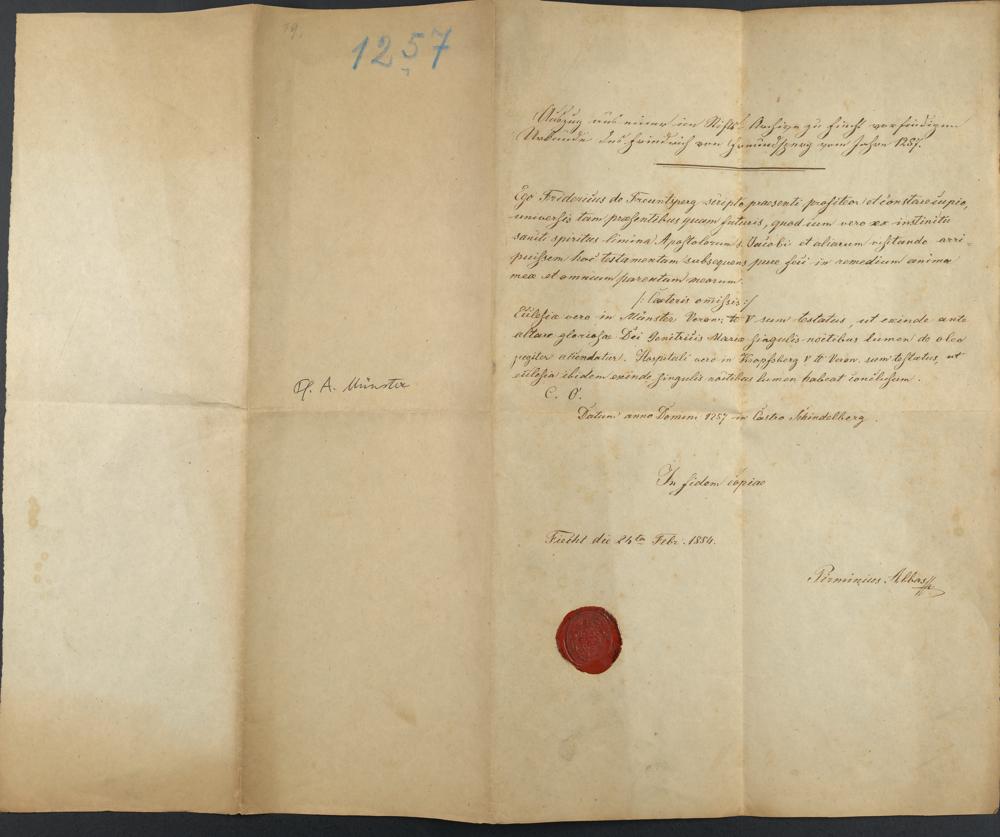 19.
1257
Pf. A. Münster
Auszug aus einer im Stifts-Archive zu Fiecht vorfindigen
Urkunde des Friedrich von Freundsperg vom Jahre 1257.
Ego Fridericus de Freuntsperg scripto praesenti profiteor et constare cupio,
universis tam praesentibus quam futuris, quod cum vero ex instinctu
sancti spiritus limina Apostolorum s. Jacobi et aliarum visitando arri-
puissem hoc testamentum subsequens pure feci in remedium anima
meæ et omnium parentum meorum.
/: Cæteris omissis :/
Ecclesiæ vero in Münster Veron: tt V sum testatus, ut exinde ante
altare gloriosæ Dei Genitricis Mariæ singulis noctibus lumen de oleo
jugiter accendatur. Hospitali vero in Kropfsberg V tt Veron. sum testatus, ut
ecclesia ibidem exinde singulis noctibus lumen habeat
C. O.
Datum anno Domini 1257 in Castro Schindelberg.
In fidem copiae
Fiecht die 24ta Febr. 1884.
Pirminius Abbas